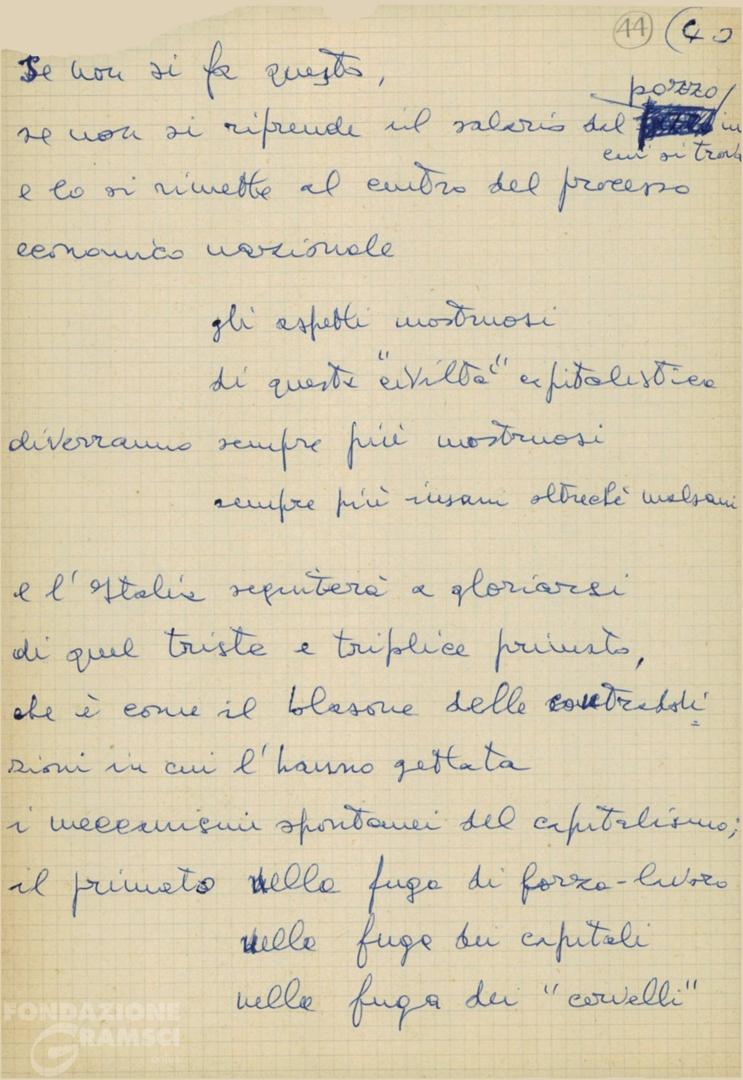 44 (40
Se non si fa questo,
se non si riprende il salario dal pozzo in
cui si trova
e lo si rimette al centro del processo
economico nazionale
gli aspetti mostruosi
di questa "civiltà" capitalistica
diverranno sempre più mostruosi
sempre più insani oltreché malsani
e l'Italia seguiterà a gloriarsi
di quel triste e triplice primato,
che è come il blasone delle contraddi=
zioni in cui l'hanno gettata
i meccanismi spontanei del capitalismo;
il primato nella fuga di forza-lavoro
nella fuga dei capitali
nella fuga dei "cervelli"
FONDAZIONE
GRAMSCI